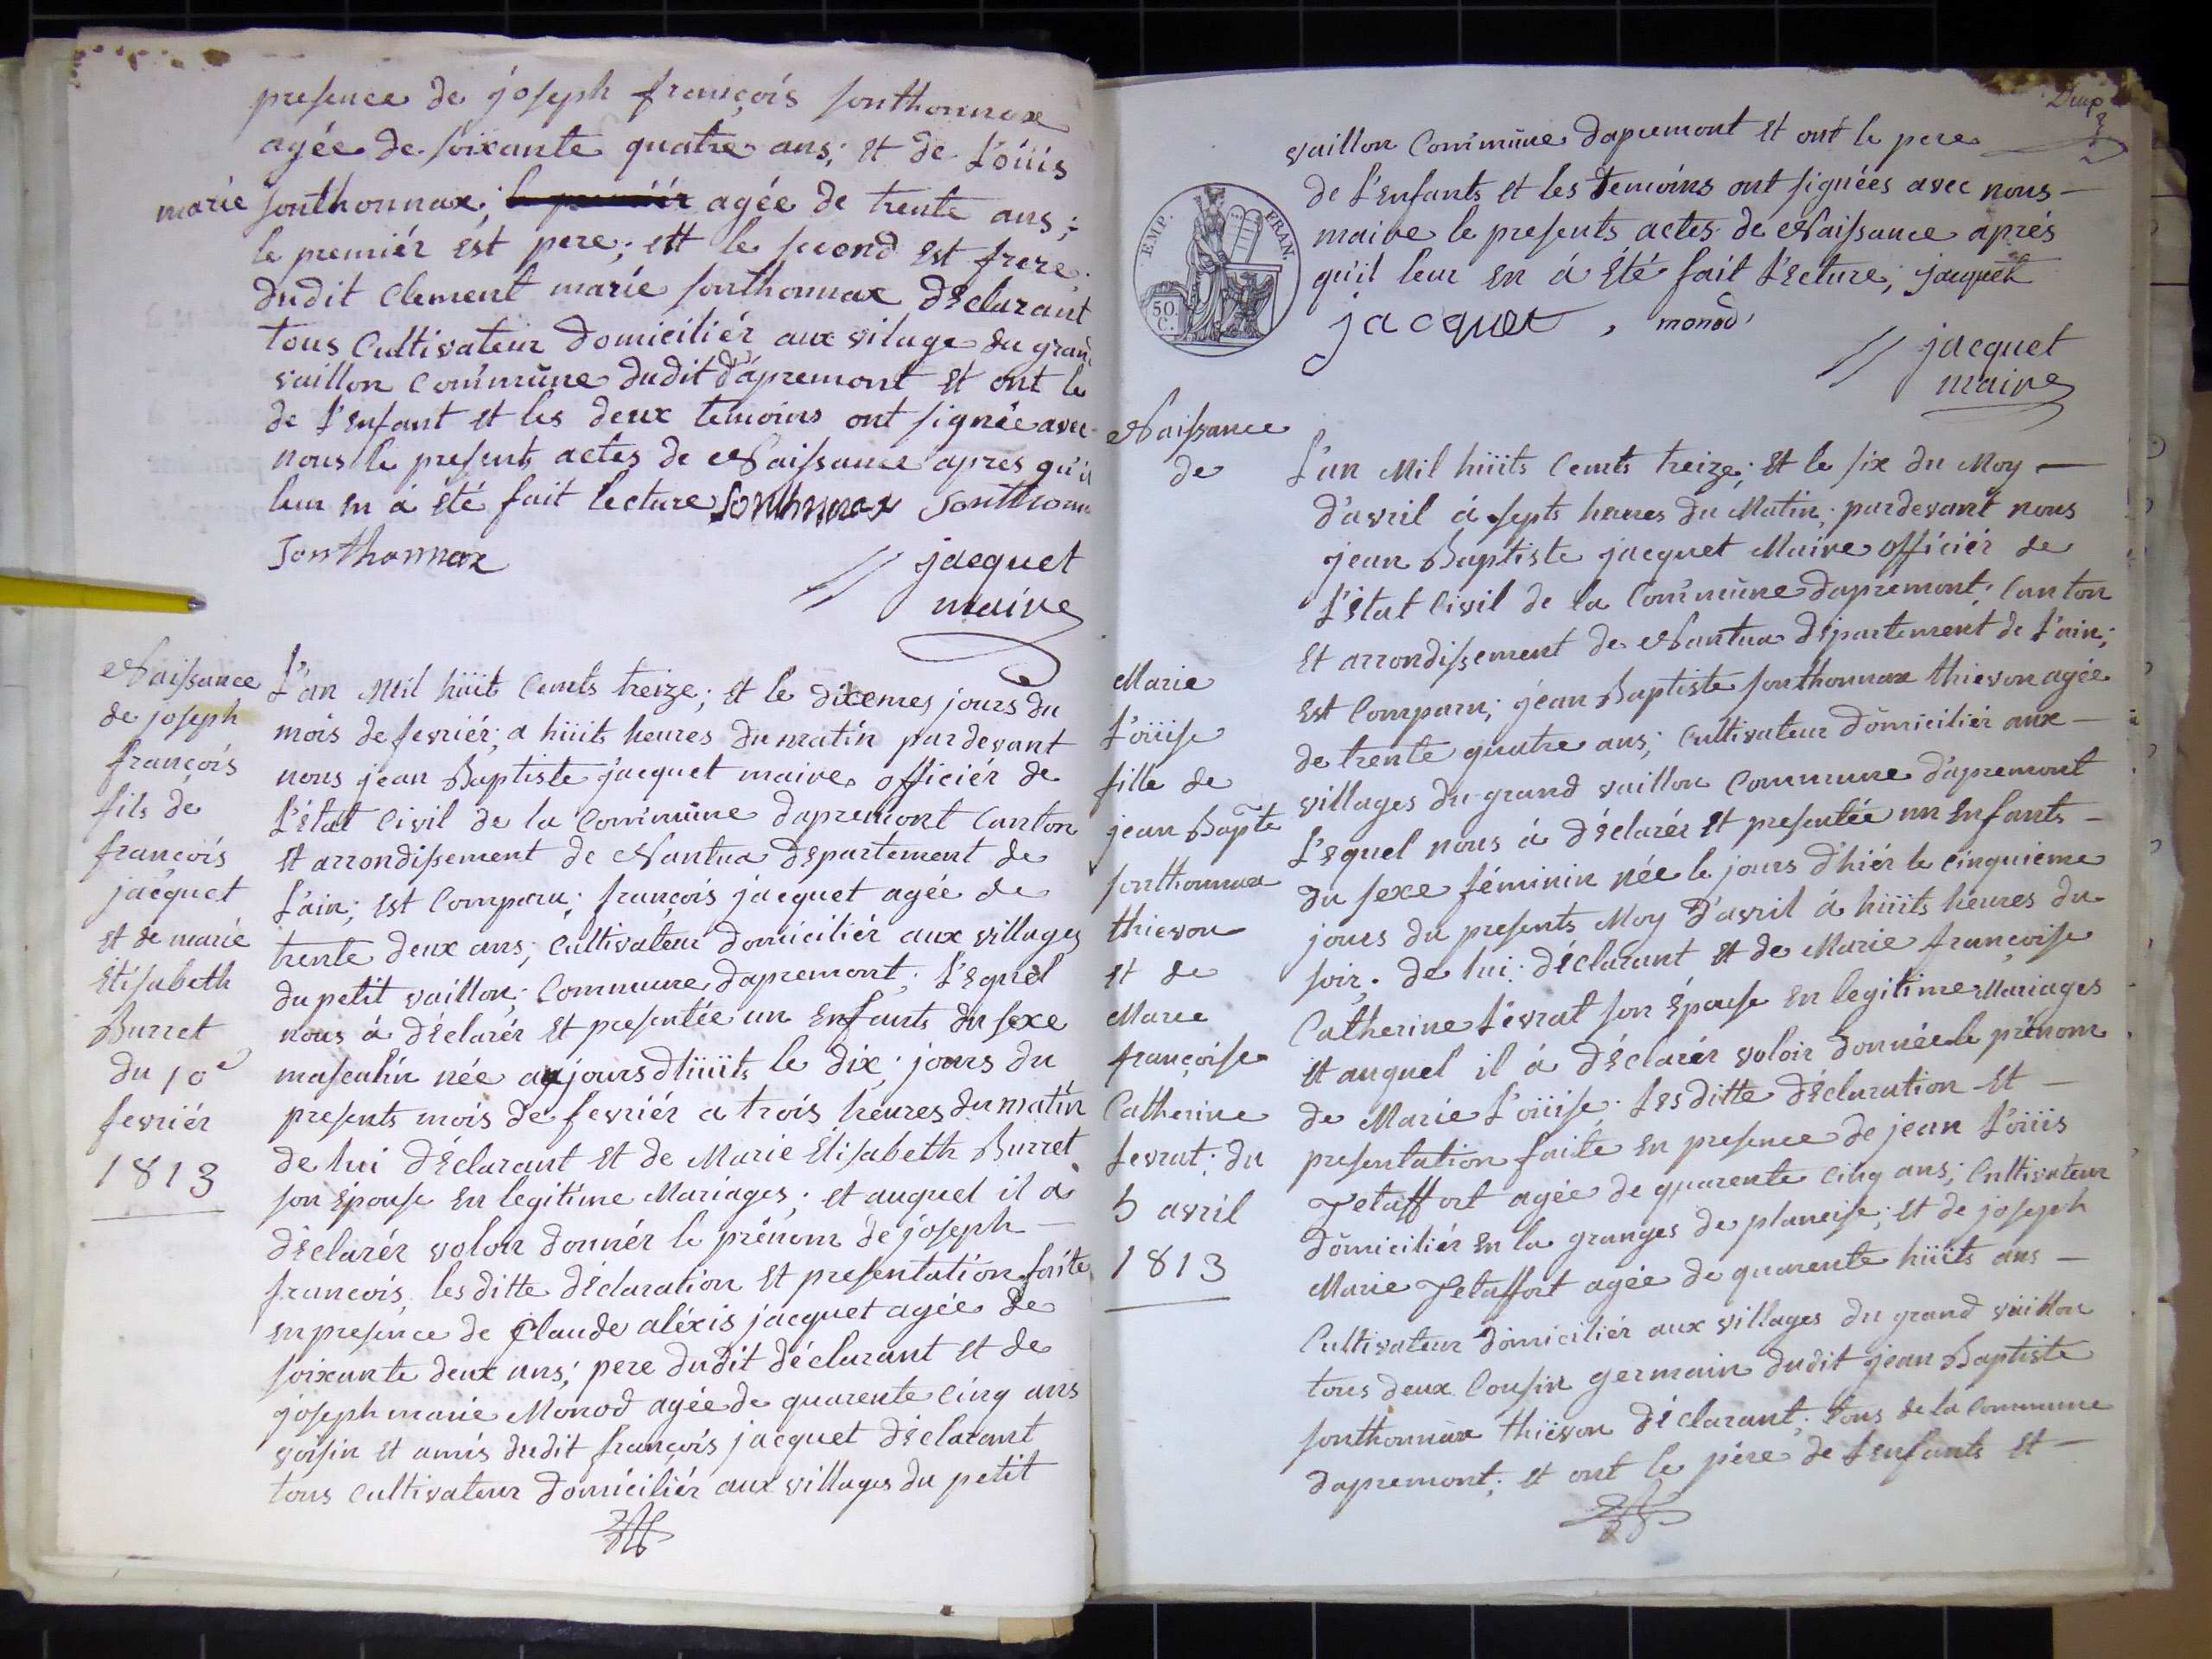 presence de joseph françois sonthonnax
agée de soixante quatre ans; et de Loüis
marie sonthonnax; agée de trente ans;
le premiér est pere; ett le second est frere
dudit Clement marie sonthonnax déclarant
tous Cultivateur domiciliér aux vilage du grand
vaillon commune dudit d'apremont et ont le
de l'enfant et les deux temoins ont signée avec
nous le presents actes de Naissance aprés qu'il
leur en á été fait lecture Sonthonnax Sonthonn
Sonthonnax
jacquet
maire
Naissance
de joseph
françois
fils de
françois
jacquet
et de marie
Elisabeth
Burret
du 10e
fevriér
1813
L'an Mil hüit Cents treize; et le dixemes jours du
mois de fevriér; a hüits heures du matin pardevant
nous jean Baptiste jacquet maire officiér de
L'état Civil de la Commune dapremont Canton
et arrondissement de Nantua departement de
L'ain; est Comparu; françois jacquet agée de
trente deux ans; Cultivateur domiciliér aux villages
du petit vaillon; Commune dapremont; Lequel
nous á déclarér et presentée un enfants du sexe
masculin née aujoursdhüits le dix jours du
presents mois de fevriér a trois heures du matin
de lui déclarant et de Marie Elisabeth Burret
son épouse en legitime Mariages; et auquel il a
déclarér voloir donnér le prénom de joseph —
françois, lesditte déclaration et presentation faite
en presence de Claude aléxis jacquet agée de
soixante deux ans; pere dudit déclarant et de
joseph marie Monod agée de quarente cinq ans
voisin et amis dudit françois jacquet déclarant
tous Cultivateur domiciliér aux villages du petit
Deux
vaillon Commune dapremont et ont le pere
de l'enfants et les temoins ont signées avec nous —
maire le presents actes de Naissance aprés
qu'il leur en á été fait lecture; jacquet
jacquet, monod
jacquet
maire
EMP. FRAN.
50.
C.
Naissance
de
Marie
Loüise
fille de
jean Bapte
sonthonnax
thievon
et de
Marie
françoise
Catherine
Levrat; du
5 avril
1813
L'an Mil hüits Cents treize; et le six du Moy —
d'avril á septs heures du Matin; pardevant nous
jean Baptiste jacquet Maire Officiér de
L'état Civil de la Commune dapremont; Canton
et arrondissement de Nantua département de L'ain;
est Comparu; jean Baptiste sonthonnax thievon agée
de trente quatre ans; Cultivateur domiciliér aux —
villages du grand vaillon Commune d'apremont
Lequel nous á déclarér et presentée un enfants —
du sexe féminin née le jours d'hiér le cinquieme
jours du presents Moy d'avril á hüits heures du
soir; de lui déclarant et de Marie françoise
Catherine Levrat son épouse en legitime Mariages
et auquel il á déclarér voloir donnée le prénom
de Marie Loüise; Lesditte déclaration et —
presentation faite en presence de jean Loüis
Jetaffort agée de quarente cinq ans; Cultivateur
domiciliér en la granges de planeise; et de joseph
Marie Jetaffort agée de quarente hüits ans —
Cultivateur domiciliér aux villages du grand vaillon
tous deux Cousin germain dudit jean Baptiste
sonthonnax thiévon déclarant; tous de la Commune
dapremont; et ont le pére de l'enfants et —